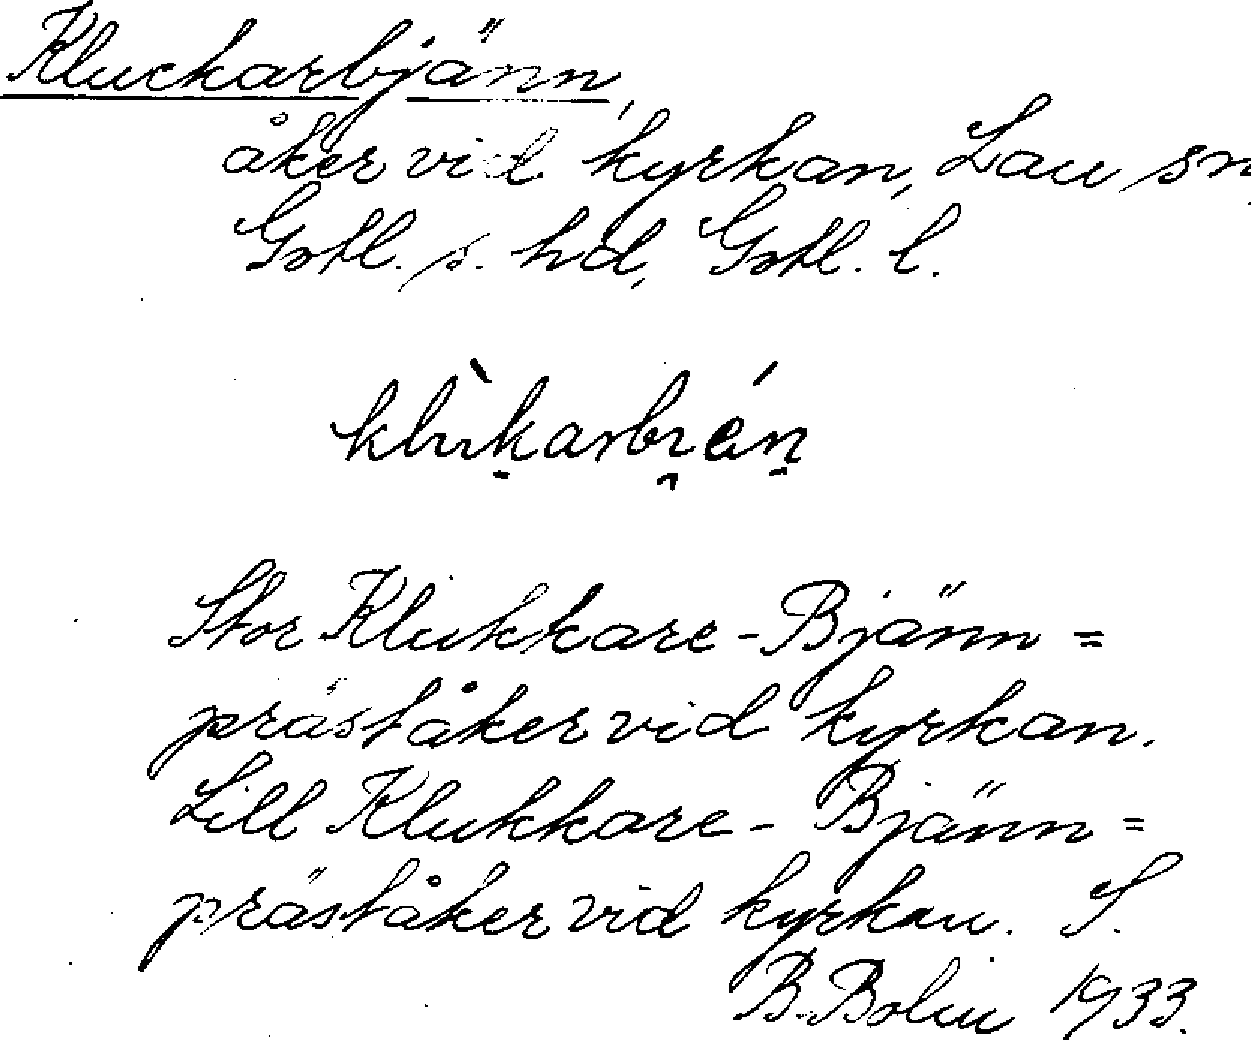 Kluckarbjänn,
åker vid kyrkan, Lau sn,
Gotl. s. hd, Gotl. l.
klùk̠arbi̯én̠
Stor Klukkare-Bjänn =
präståker vid kyrkan.
Lill Klukkare-Bjänn =
präståker vid kyrkan. S.
B. Bolin 1933.